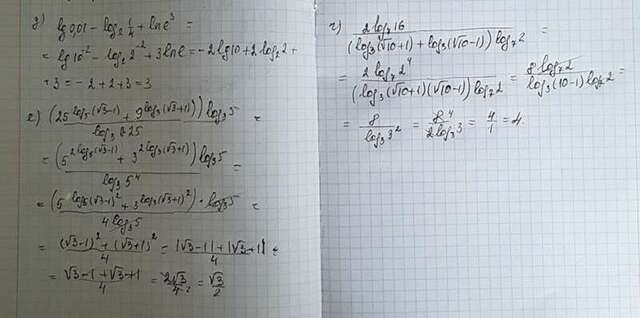 д) lg 0,01 - log₂ 1/4 + ln e³ =
= lg 10⁻² - log₂ 2⁻² + 3 ln e = -2 lg 10 + 2 log₂ 2 +
+ 3 = -2 + 2 + 3 = 3
е) (25^(log₅(√3-1)) + 9^(log₃(√3+1))) log₃ 5 / log₃ 25 =
= (5^(2log₅(√3-1)) + 3^(2log₃(√3+1))) log₃ 5 / log₃ 5⁴ =
= (5^(log₅(√3-1)²) + 3^(log₃(√3+1)²)) · log₃ 5 / 4 log₃ 5 =
= (√3-1)² + (√3+1)² / 4 = |√3-1| + |√3+1| / 4 =
= √3-1+√3+1 / 4 = 2√3 / 4 = √3 / 2
г) 2 log₇ 16 / (log₃(√10+1) + log₃(√10-1)) log₇ 2 =
= 2 log₇ 2⁴ / (log₃(√10+1)(√10-1)) log₇ 2 = 8 log₇ 2 / log₃(10-1) log₇ 2 =
= 8 / log₃ 3² = 8 4 / 2 log₃ 3 = 4/1 = 4